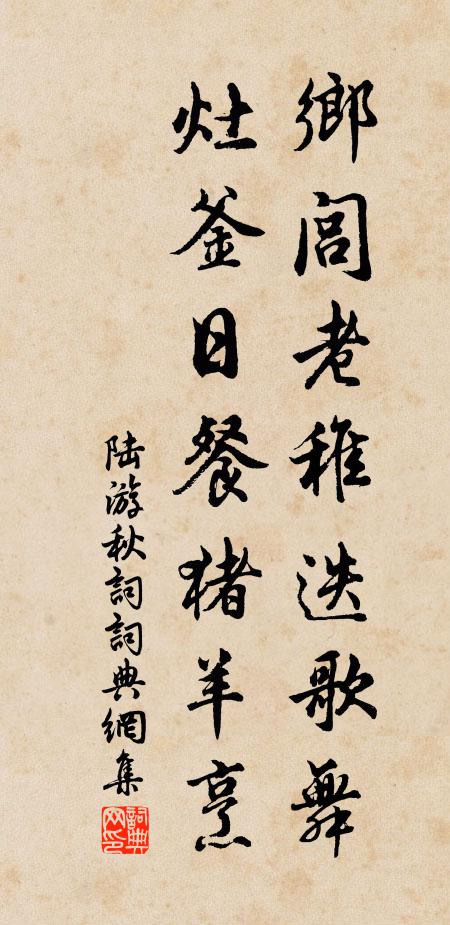 鄉閭老稚迭歌舞
灶釜日餐猪羊烹
陆游秋詞詞典網集
詞典网印